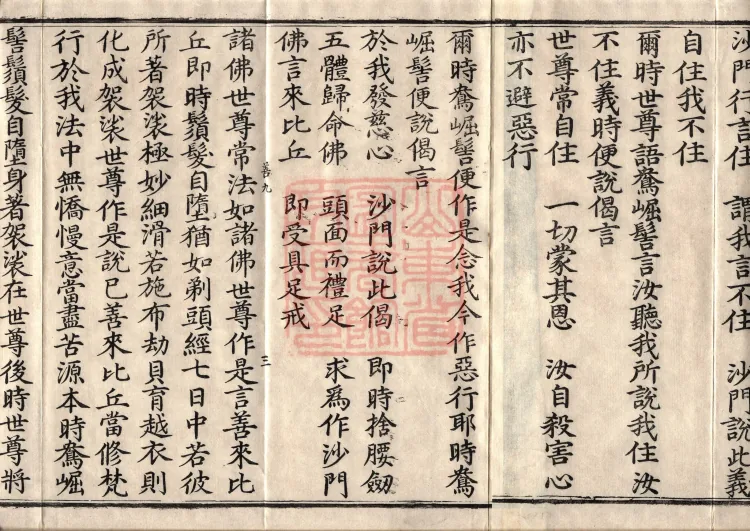 沙門行言住　謂我言不住　沙門說此義
自住我不住
爾時世尊語鴦崛髻言汝聽我所說我住汝
不住義時便說偈言
世尊常自住　一切蒙其恩　汝自殺害心
亦不避惡行
爾時鴦崛髻便作是念我今作惡行耶時鴦
崛髻便說偈言
於我發慈心　沙門說此偈　即時捨腰劒
五體歸命佛　頭面而禮足　求爲作沙門
佛言來比丘　即受具足戒
善九　三
諸佛世尊常法如諸佛世尊作是言善來比
丘即時鬚髮自墮猶如剃頭經七日中若彼
所著袈裟極妙細滑若施布劫貝育越衣則
化成袈裟世尊作是說已善來比丘當修梵
行於我法中無憍慢意當盡苦源本時鴦崛
髻鬚髮自墮身著袈裟在世尊後時世尊將